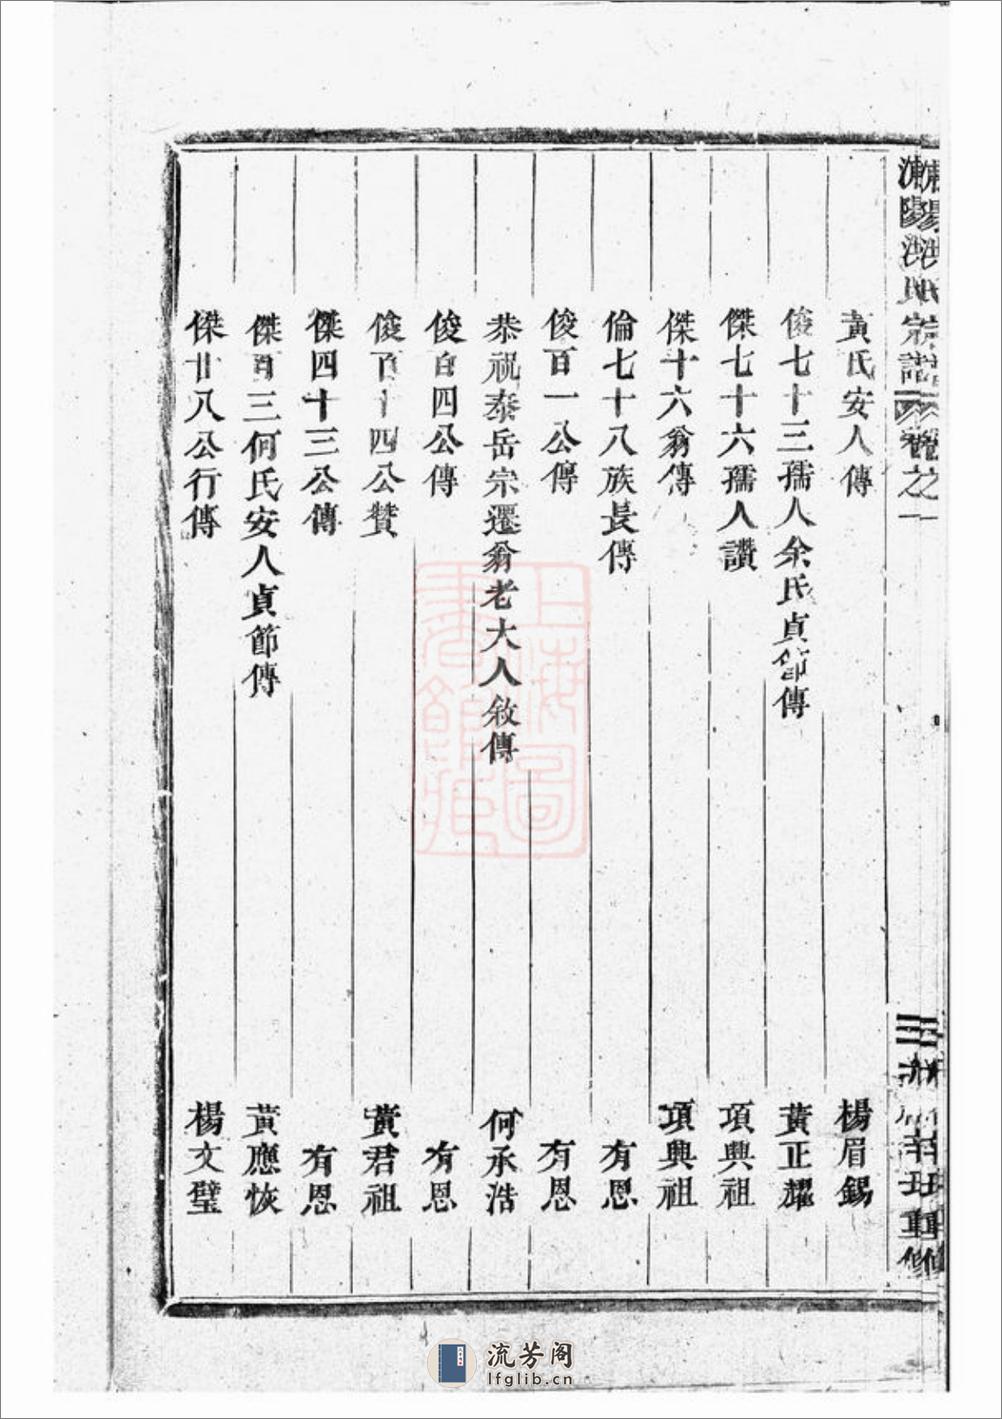 陽洪氏宗譜 卷之一
三 辛丑重修
黃氏安人傳 楊眉錫
俊七十三孺人余氏貞節傳 黃正耀
傑七十六孺人讚 項興祖
傑十六翁傳 項興祖
倫七十八族長傳 有恩
俊百一公傳 有恩
恭祝泰岳宗遷翁老大人敘傳 何承浩
俊百四公傳 有恩
俊百十四公贊 黃君祖
傑四十三公傳 有恩
傑百三何氏安人貞節傳 黃應恢
傑廿八公行傳 楊文璧
上海圖書館藏
流芳阁
lfglib.cn